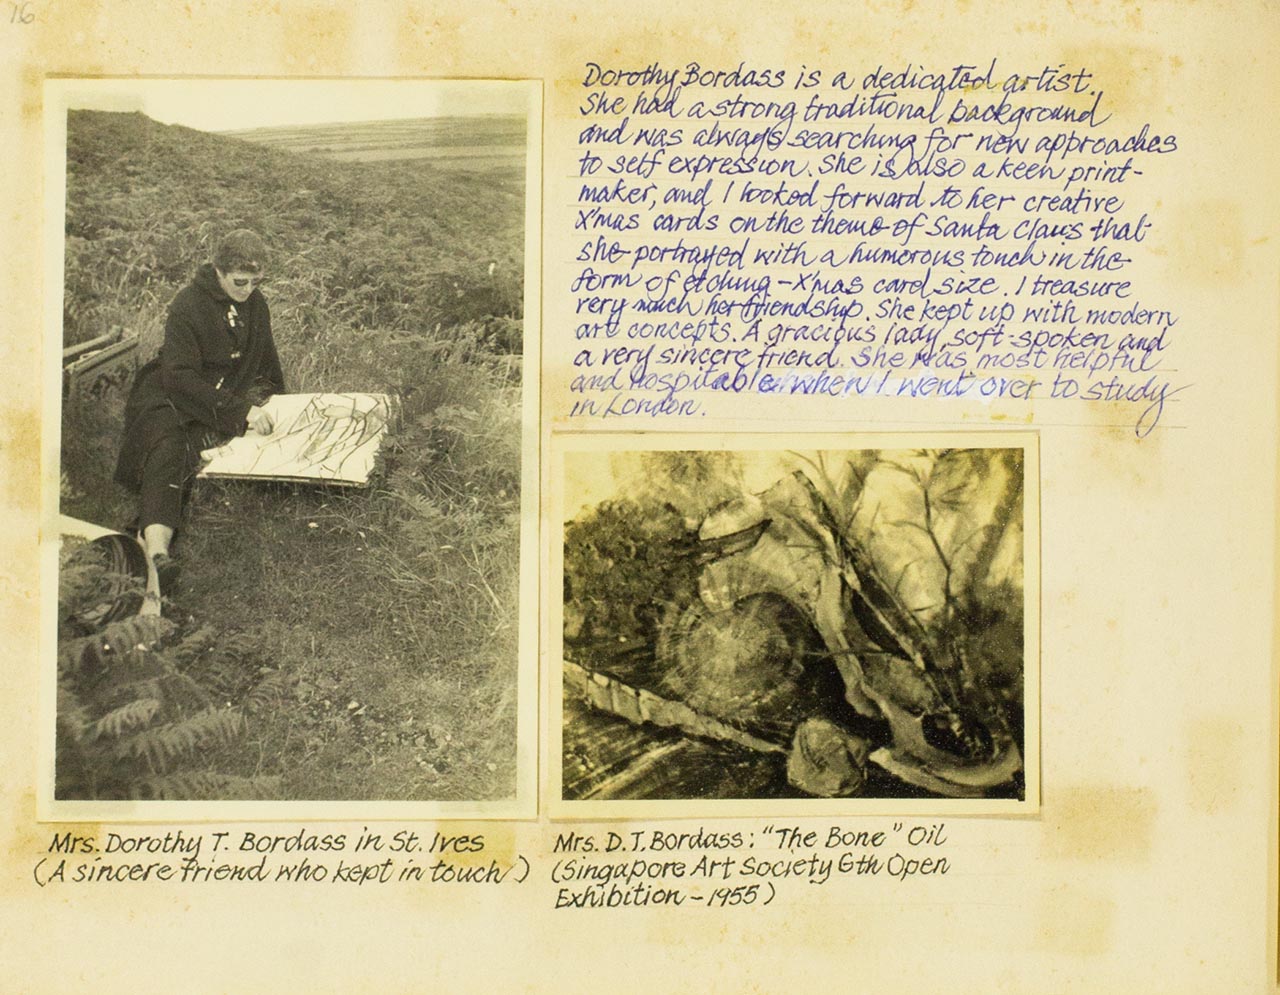 16
Dorothy Bordass is a dedicated artist.
She had a strong traditional background
and was always searching for new approaches
to self expression. She is also a keen print-
maker, and I looked forward to her creative
X'mas cards on the theme of Santa Claus that
she portrayed with a humorous touch in the
form of etching - X'mas card size. I treasure
very much her friendship. She kept up with modern
art concepts. A gracious lady, soft-spoken and
a very sincere friend. She was most helpful
and hospitable when I went over to study
in London.
Mrs. Dorothy T. Bordass in St. Ives
(A sincere friend who kept in touch)
Mrs. D.T. Bordass: "The Bone" Oil
(Singapore Art Society 6th Open
Exhibition - 1955)